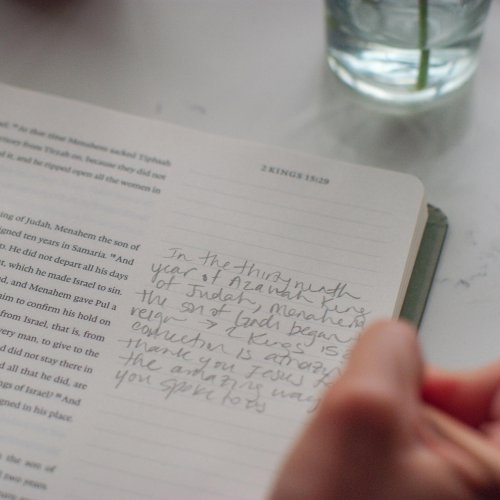 2 KINGS 15:29
el. 16 At that time Menahem sacked Tiphsah
ritory from Tirzah on, because they did not
d it, and he ripped open all the women in
ing of Judah, Menahem the son of
igned ten years in Samaria. 18 And
D. He did not depart all his days
at, which he made Israel to sin.
nd, and Menahem gave Pul a
him to confirm his hold on
from Israel, that is, from
very man, to give to the
d did not stay there in
d all that he did, are
ngs of Israel? 22 And
gned in his place.
the son of
two years.
In the thirty ninth
year of Azariah King
of Judah, Menahem
the son of Gadi began
reign → 2 Kings 15
connection is
thank you Jesus
the amazing way
you spoke to us